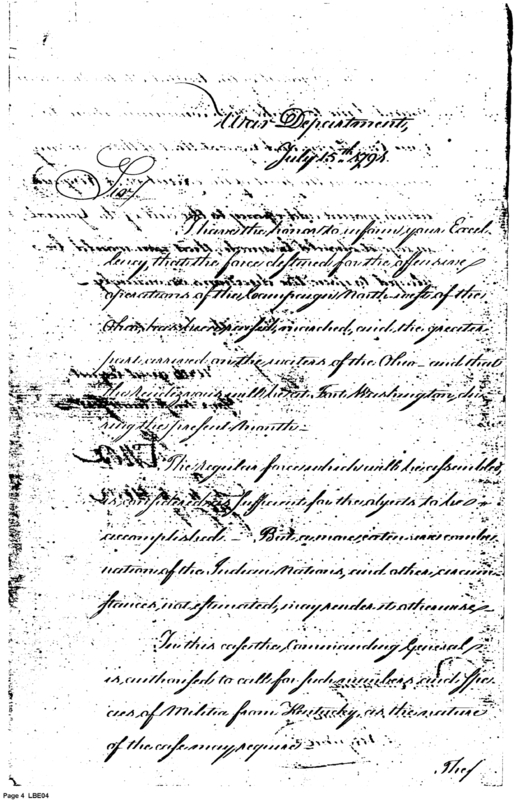 War Department,
July 15th 1791.
Sir,
I have the honor to inform your Excel-
lency, that the force destined for the offensive
operations of the Campaign North west of the
Ohio, has been marched, and the greater
part arrived on the waters of the Ohio — and that
the rendezvous will be at Fort Washington du-
ring the present month —
The regular forces which will be assembled
is sufficient for the objects to be
accomplished — But, a more extensive combi-
nation of the Indian Nations, and other circum-
stances, not estimated, may render it otherwise —
In this case the Commanding General
is authorised to call for such numbers and Spe-
cies of Militia from Kentucky, as the nature
of the case may require
The
Page 4 LBE04